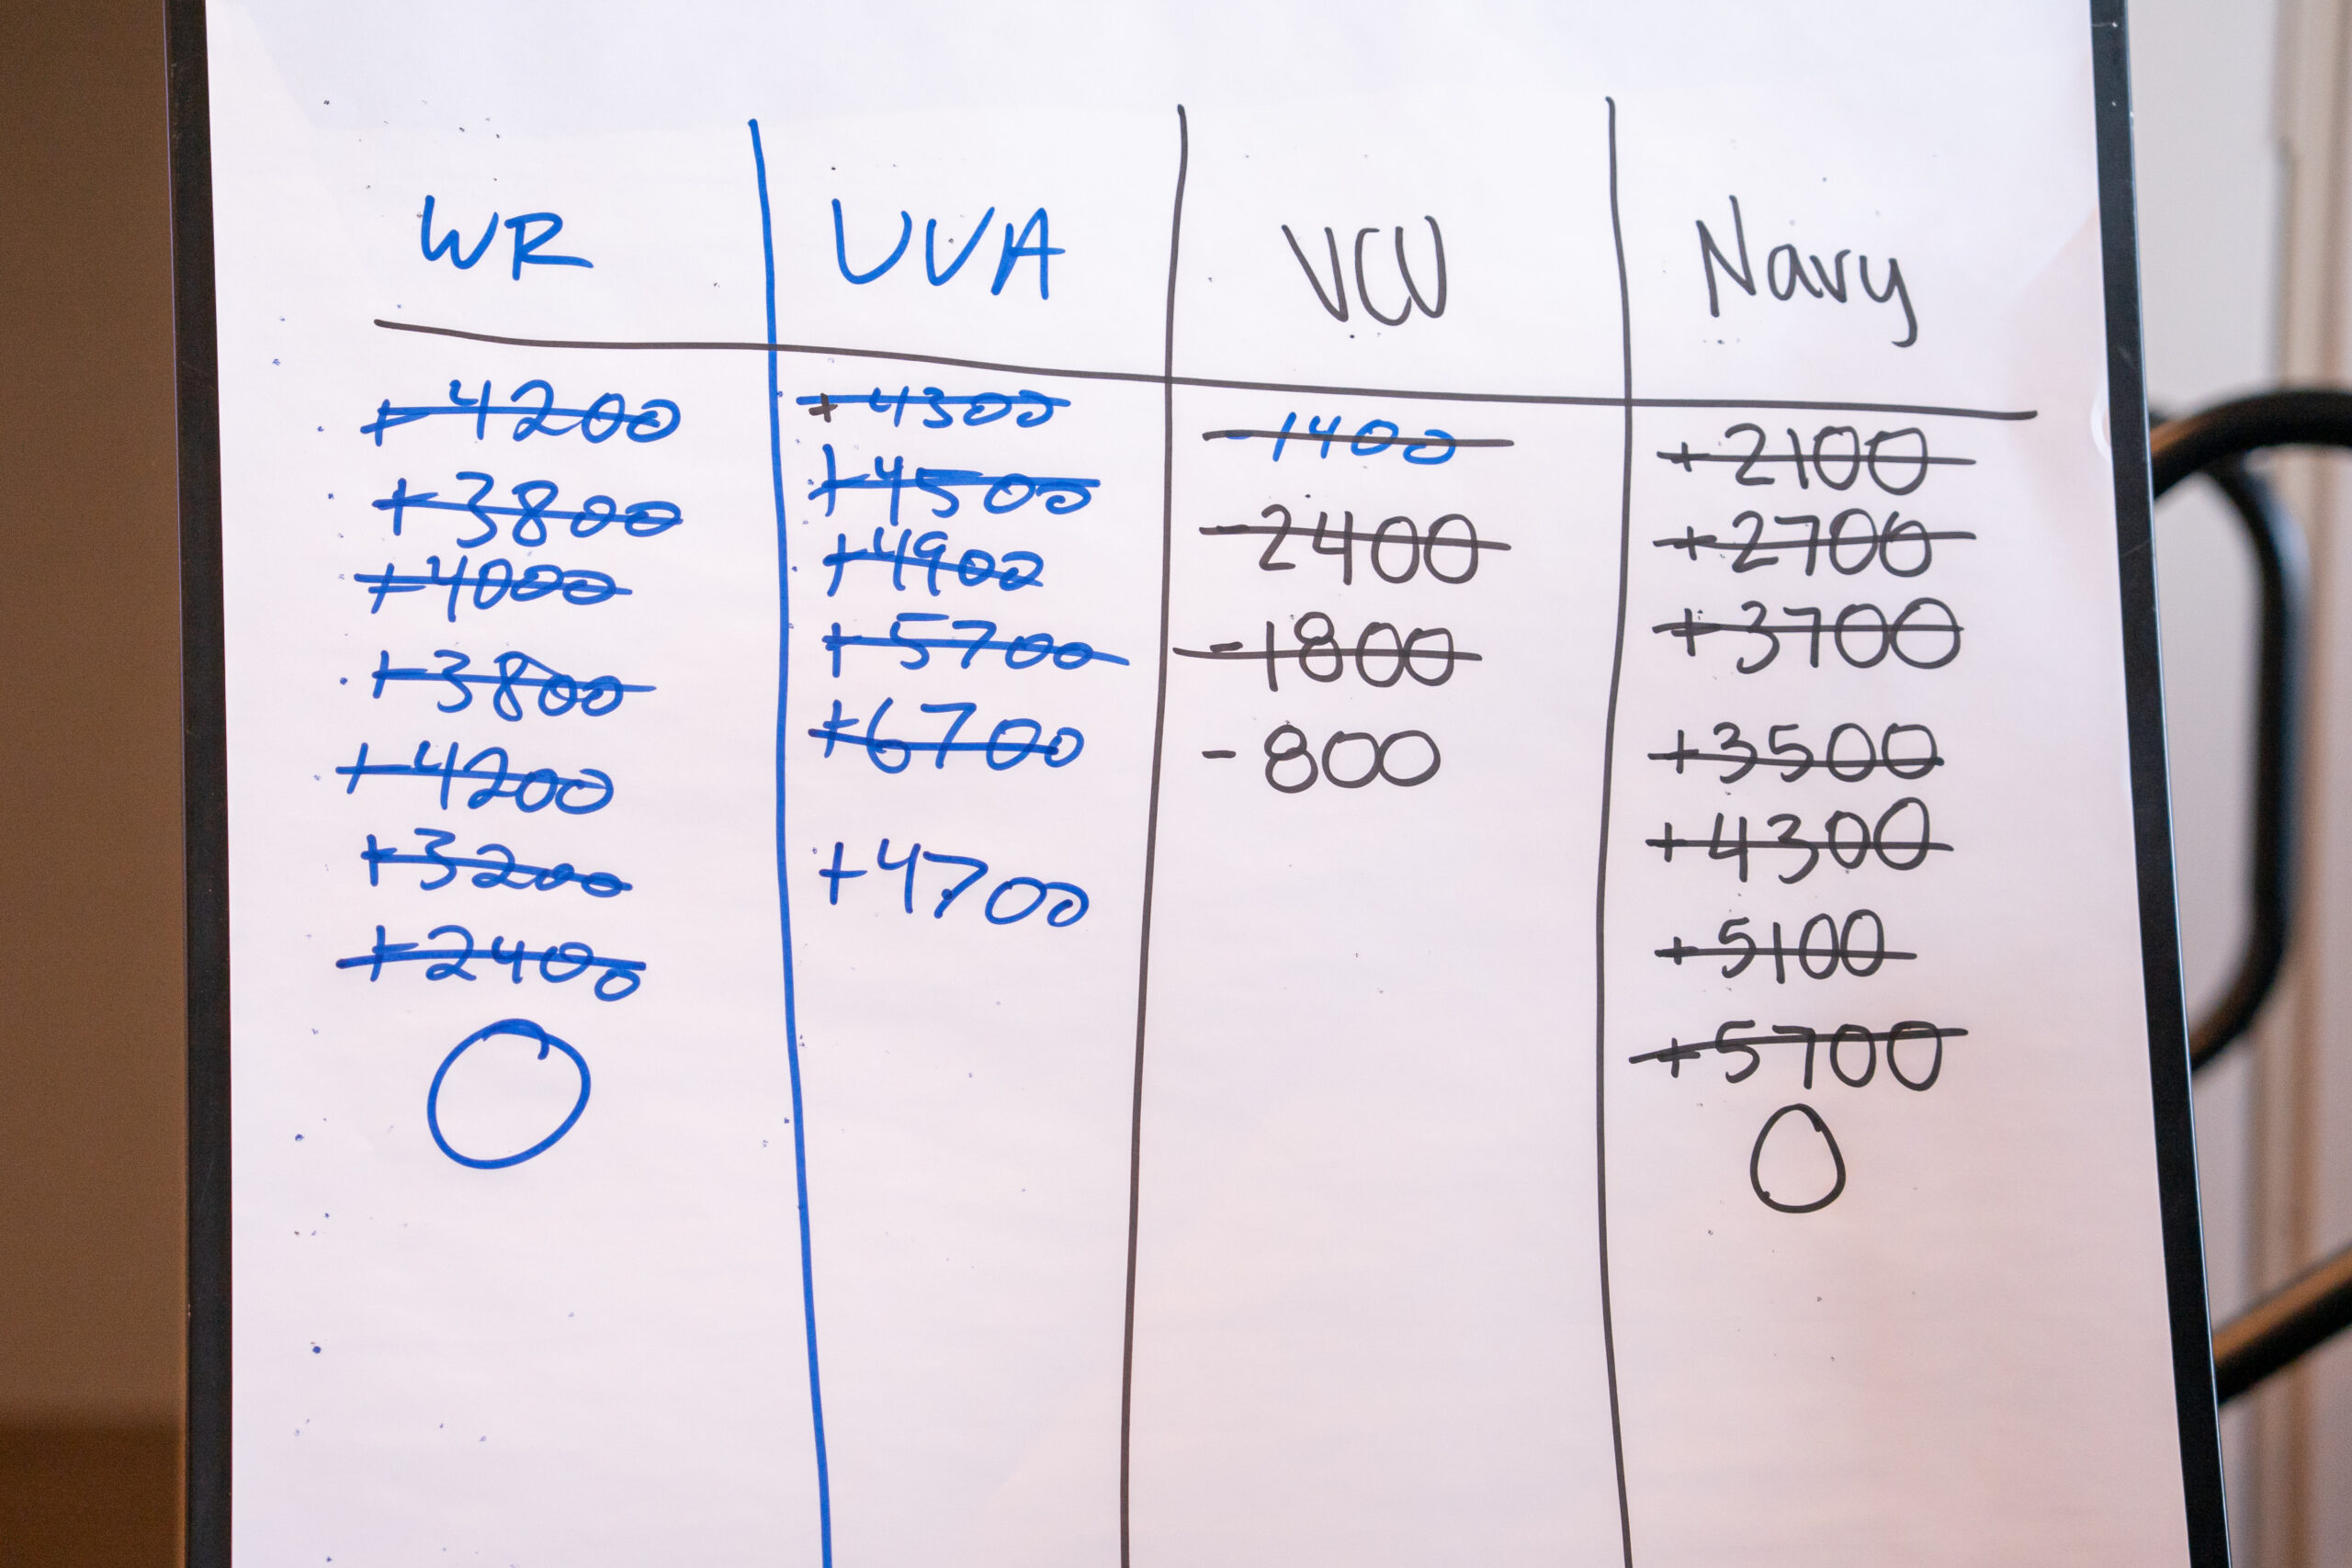 WR UVA VCU Navy
+4200 +4300 -1400 +2100
+3800 +4500 -2400 +2700
+4000 +4900 -1800 +3700
+3800 +5700 -800 +3500
+4200 +6700 +4300
+3200 +4700 +5100
+2400 +5700
0 0